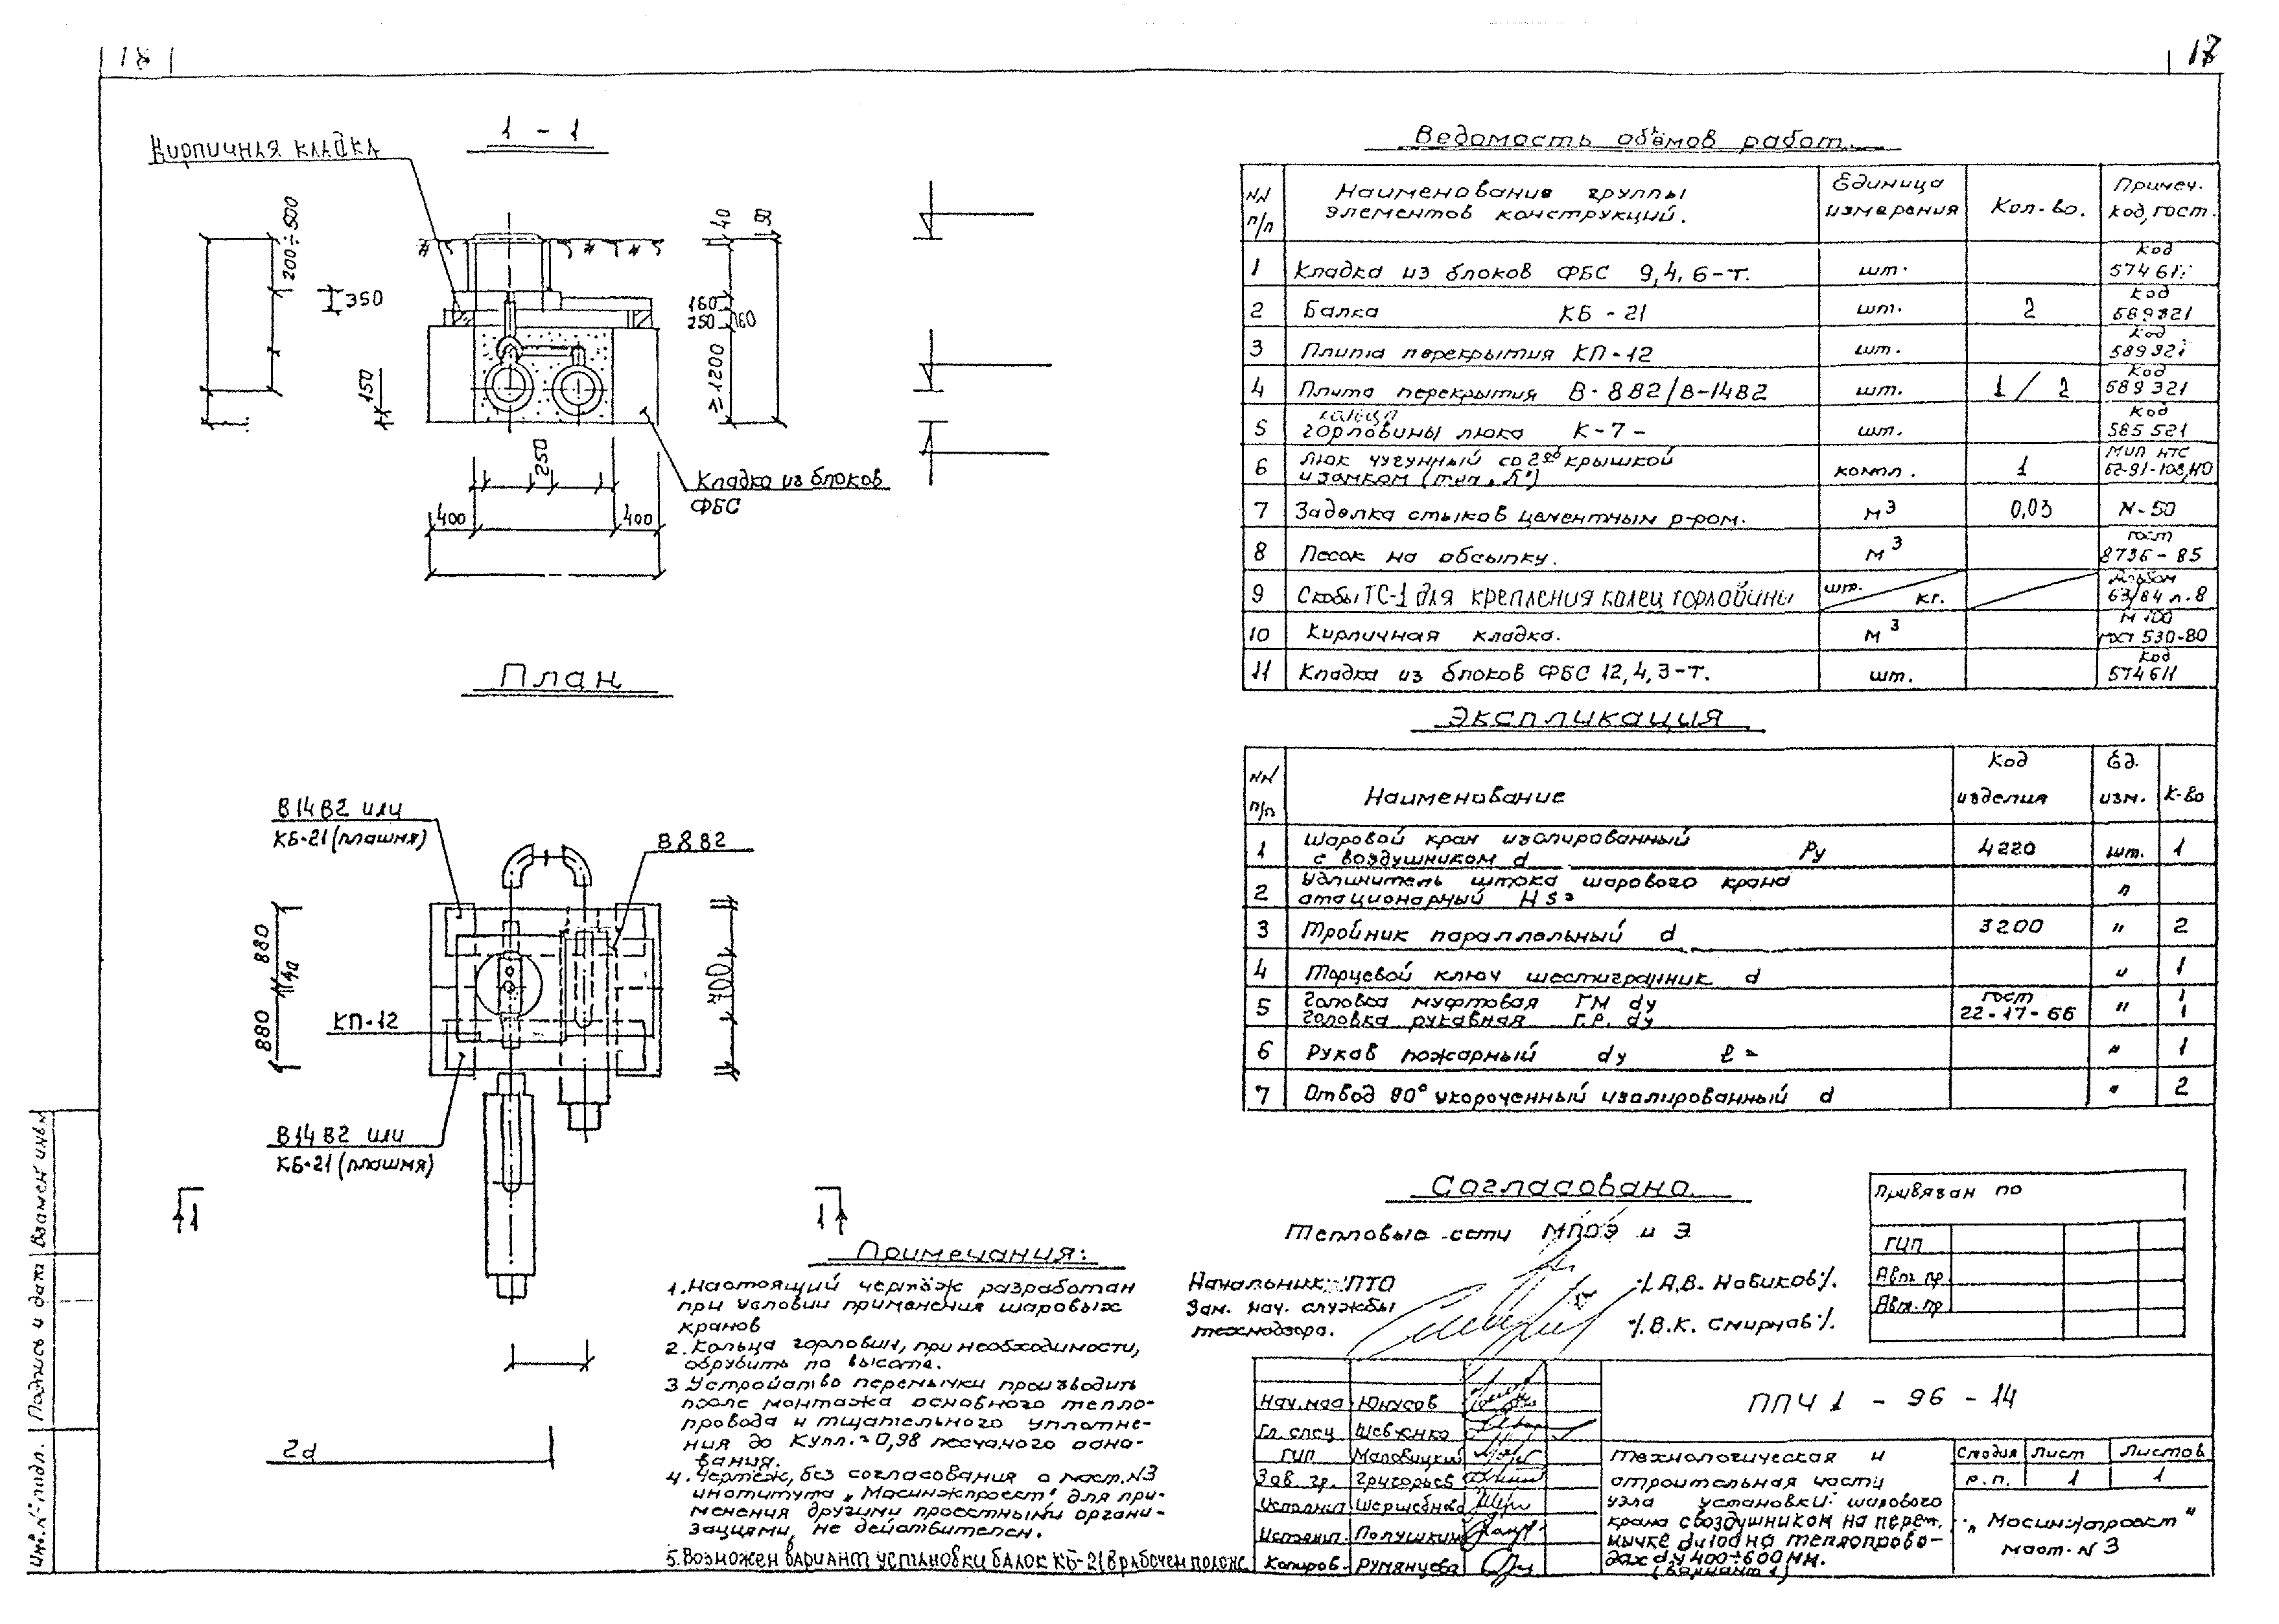 18
17
1 - 1
Кирпичная кладка
200÷500
350
150
40
50
160
250
160
≥ 1200
250
400
400
Кладка из блоков
ФБС
План
В14В2 или
КБ-21 (плашмя)
В8В2
880
40
880
700
КП-12
В14В2 или
КБ-21 (плашмя)
1
1
2d
Примечания:
1. Настоящий чертёж разработан
при условии применения шаровых
кранов
2. Кольца горловин, при необходимости,
обрубить по высоте.
3 Устройство перемычки производить
после монтажа основного тепло-
провода и тщательного уплотне-
ния до Купл.=0,98 песчаного осно-
вания.
4. Чертёж, без согласования с маст.N3
института „Мосинжпроект" для при-
менения другими проектными органи-
зациями, не действителен.
5. Возможен вариант установки балок КБ-21 в рабочем полож.
Ведомость объёмов работ.
NN п/п Наименование группы элементов конструкций. Единица измерения Кол-во. Примеч. код, гост.
1 Кладка из блоков ФБС 9,4,6-т. шт. Код 574611
2 Балка КБ - 21 шт. 2 Код 589321
3 Плита перекрытия КП-12 шт. Код 589321
4 Плита перекрытия В-8В2/В-14В2 шт. 1 / 2 Код 589321
5 кольца горловины люка К-7- шт. Код 585521
6 Люк чугунный со 2ой крышкой и замком (тип „Б") компл. 1 МИП НТС 62-91-108
7 Заделка стыков цементным р-ром. м3 0,03 М-50
8 Песок на обсыпку. м3 гост 8736-85
9 Скобы ТС-1 для крепления колец горловины шт. кг. Альбом 63/84 л.8
10 Кирпичная кладка. м3 М 100 гост 530-80
11 Кладка из блоков ФБС 12,4,3-т. шт. Код 574611
Экспликация
NN п/п Наименование Код изделия Ед. изм. К-во
1 Шаровой кран изолированный с воздушником d Ру 4220 шт. 1
2 Удлинитель штока шарового крана стационарный HS= "
3 Тройник параллельный d 3200 " 2
4 Торцевой ключ шестигранник d " 1
5 Головка муфтовая ГМ dy Головка рукавная Г.Р. dy гост 22-17-66 " 1 1
6 Рукав пожарный dy ℓ= " 1
7 Отвод 90° укороченный изолированный d " 2
Согласовано
Тепловые сети МПОЭ и Э
Начальник ПТО /А.В. Новиков/.
Зам. нач. службы
технадзора. /.В.К. Смирнов/.
Привязан по
ГИП
Авт. пр.
Авт. пр.
Нач.мас Юнусов
Гл. спец Шевченко
ГИП Маловицкий
Зав. гр. Григорьев
Исполнил
Исполнил. Полушкин
Копиров. Румянцева
ППЧ 1 - 96 - 14
Технологическая и
строительная части
узла установки шарового
крана с воздушником на перем.
мычке dy100 на теплопрово-
дах dy 400÷600мм.
(Вариант 1)
Стадия Лист Листов
р.п. 1 1
„Мосинжпроект"
маст. N 3
Инв. N подл. Подпись и дата Взамен инв.N